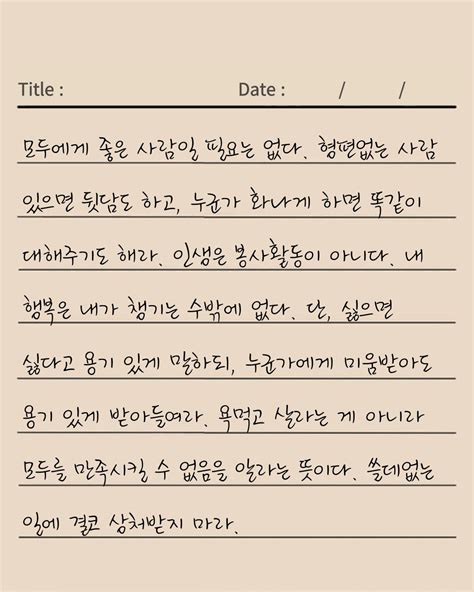 Title : Date : / /
모두에게 좋은 사람일 필요는 없다. 형편없는 사람
있으면 뒷담도 하고, 누군가 화나게 하면 똑같이
대해주기도 해라. 인생은 봉사활동이 아니다. 내
행복은 내가 챙기는 수밖에 없다. 단, 싫으면
싫다고 용기 있게 말하되, 누군가에게 미움받아도
용기 있게 받아들여라. 욕먹고 살라는 게 아니라
모두를 만족시킬 수 없음을 알라는 뜻이다. 쓸데없는
일에 결코 상처받지 마라.